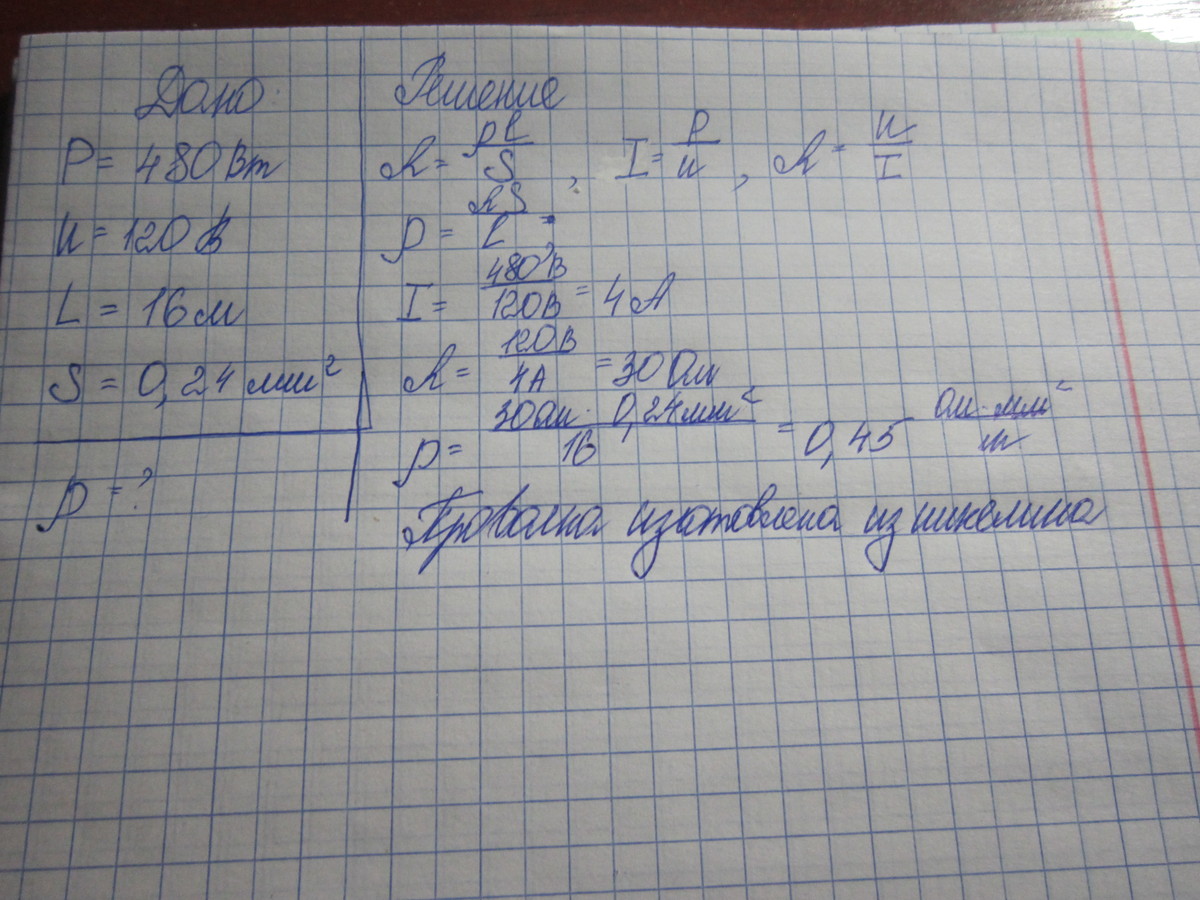 Дано
P = 480 Вт
U = 120 В
L = 16 м
S = 0,24 мм²
ρ = ?
Решение
R = ρl/S , I = P/U , R = U/I
ρ = RS/L =
I = 480 В/120 В = 4 А
R = 120 В/4 А = 30 Ом
ρ = 30 Ом · 0,24 мм²/16 = 0,45 Ом·мм²/м
Проволка изготовлена из никелина